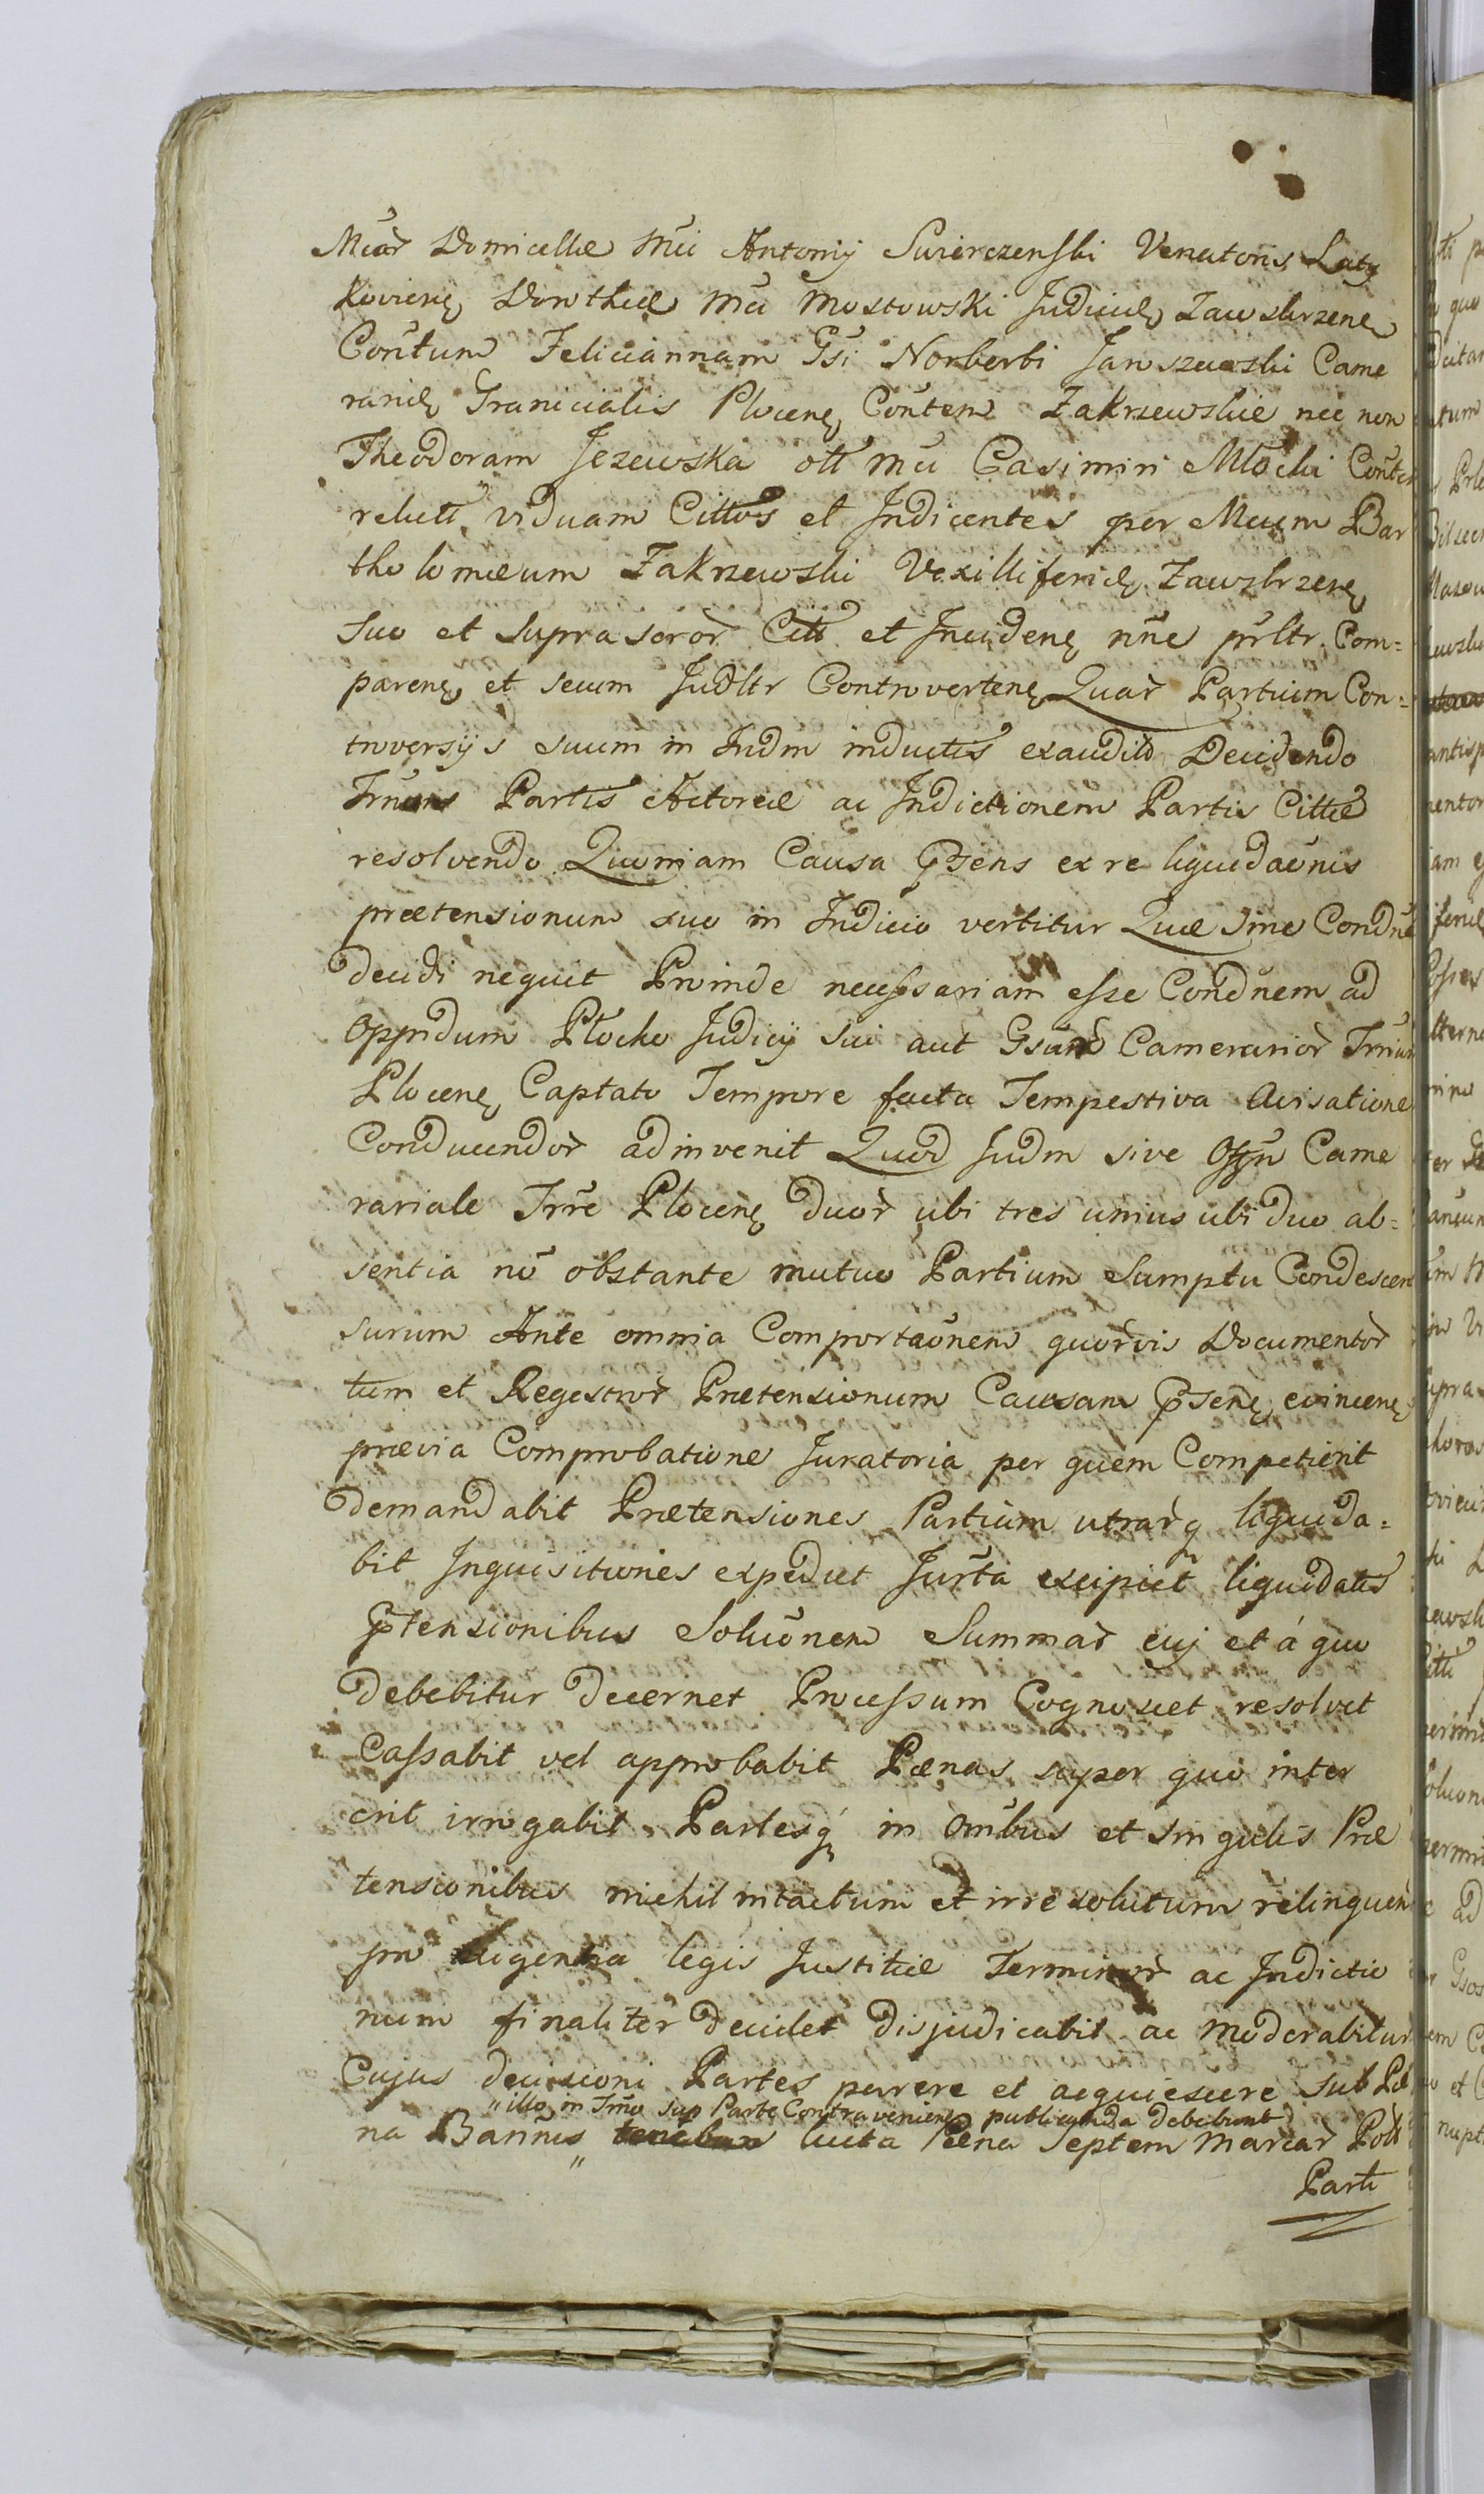 Mcar Domicellæ Mci Antonij Swierczenski Venatoris Laty
koviens Dorotheæ Mci Mostowski Judicis Zawskrzens
Contum Feliciannam Gsi Norberti Janiszewski Came
rarii Granicialis Plocens Contem Zakrzewskie nec non
Theodoram Jezewska olt Mci Casimiri Mlocki Contem
relictt viduam Cittos et Indicentes per Mcum Bar
tholomæum Zakrzewski Vexilliferi Zawskrzens
Suo et Supra soror Citt et Incidens nne prltr Com=
parens et secum Judltr Controvertens Quar Partium Con=
troversijs suum in Judm inductis exauditis Decidendo
Trnum Partis Actoreæ ac Indictionem Partis Cittæ
resolvendo Quoniam Causa Psens ex re liquidaonis
prætensionum suo in Judicio vertitur Quæ sine Condne
decidi nequit Proinde necessariam esse Condnem ad
Oppidum Plocko Judicij sui aut Gsum Camerarior Trrium
Plocens Captato Tempore facta Tempestiva Avisatione
Conducendor adinvenit Quod Judm sive Offm Came
rariale Trre Plocens duor ubi tres unius ubi duo ab=
sentia no obstante mutuo Partium Sumptu Condescen
surum Ante omnia Comportaonem quorvis Documentor
tum et Regestror Prætensionum Causam Psens evincens
prævia Comprobatione Juratoria per quem Competierit
demandabit Prætensiones Partium utrarq liquida=
bit Inquisitiones expediet Jurta excipiet liquidatis
Ptensionibus Soluonem Summar cuj et á quo
debebitur decernet Processum Cognoscet resolvet
Cassabit vel approbabit Pænas super quo inter
erit irrogabit Partesq in Omibus et singulis Præ
tensionibus niehil intactum et irresolutum relinquen
pro exigentia legis Justitiæ Terminor ac Indictio
num finaliter decidet disjudicabit ac moderabitur
Cujus decisioni Partes parere et acquiescere sub Pæ
"illo in Trno sup Parte Contraveniens publicanda debebunt
na Bannis" tenebun lucta Pæna Septem Marcar Poll
Parti